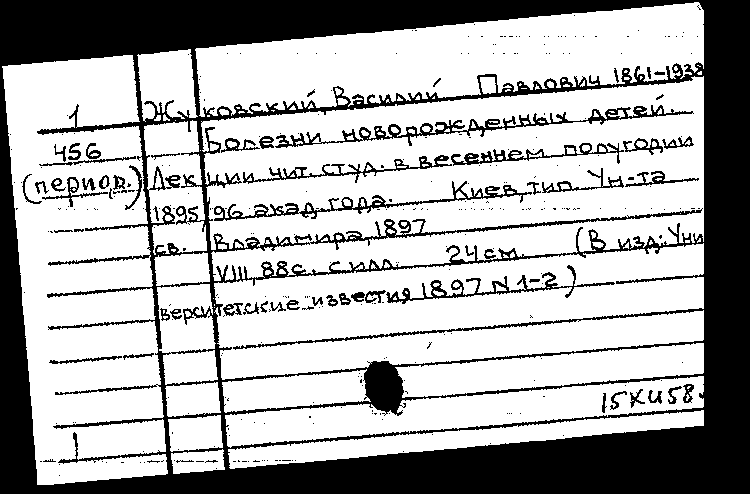 1 Жуковский, Василий Павлович 1861-1938
456 Болезни новорожденных детей.
(период.) Лекции чит. студ. в весеннем полугодии
1895/96 акад. года. Киев, тип. Ун-та
св. Владимира, 1897
VIII, 88с. с илл. 24см. (В изд.: Уни
верситетские известия 1897 N 1-2)
15XII58.
1